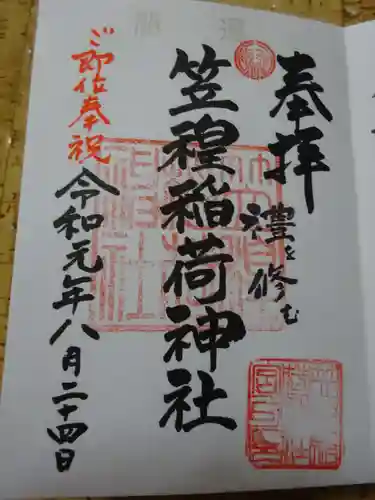 奉拝
禮を修む
笠䅣稲荷神社
ご即位奉祝
令和元年八月二十四日